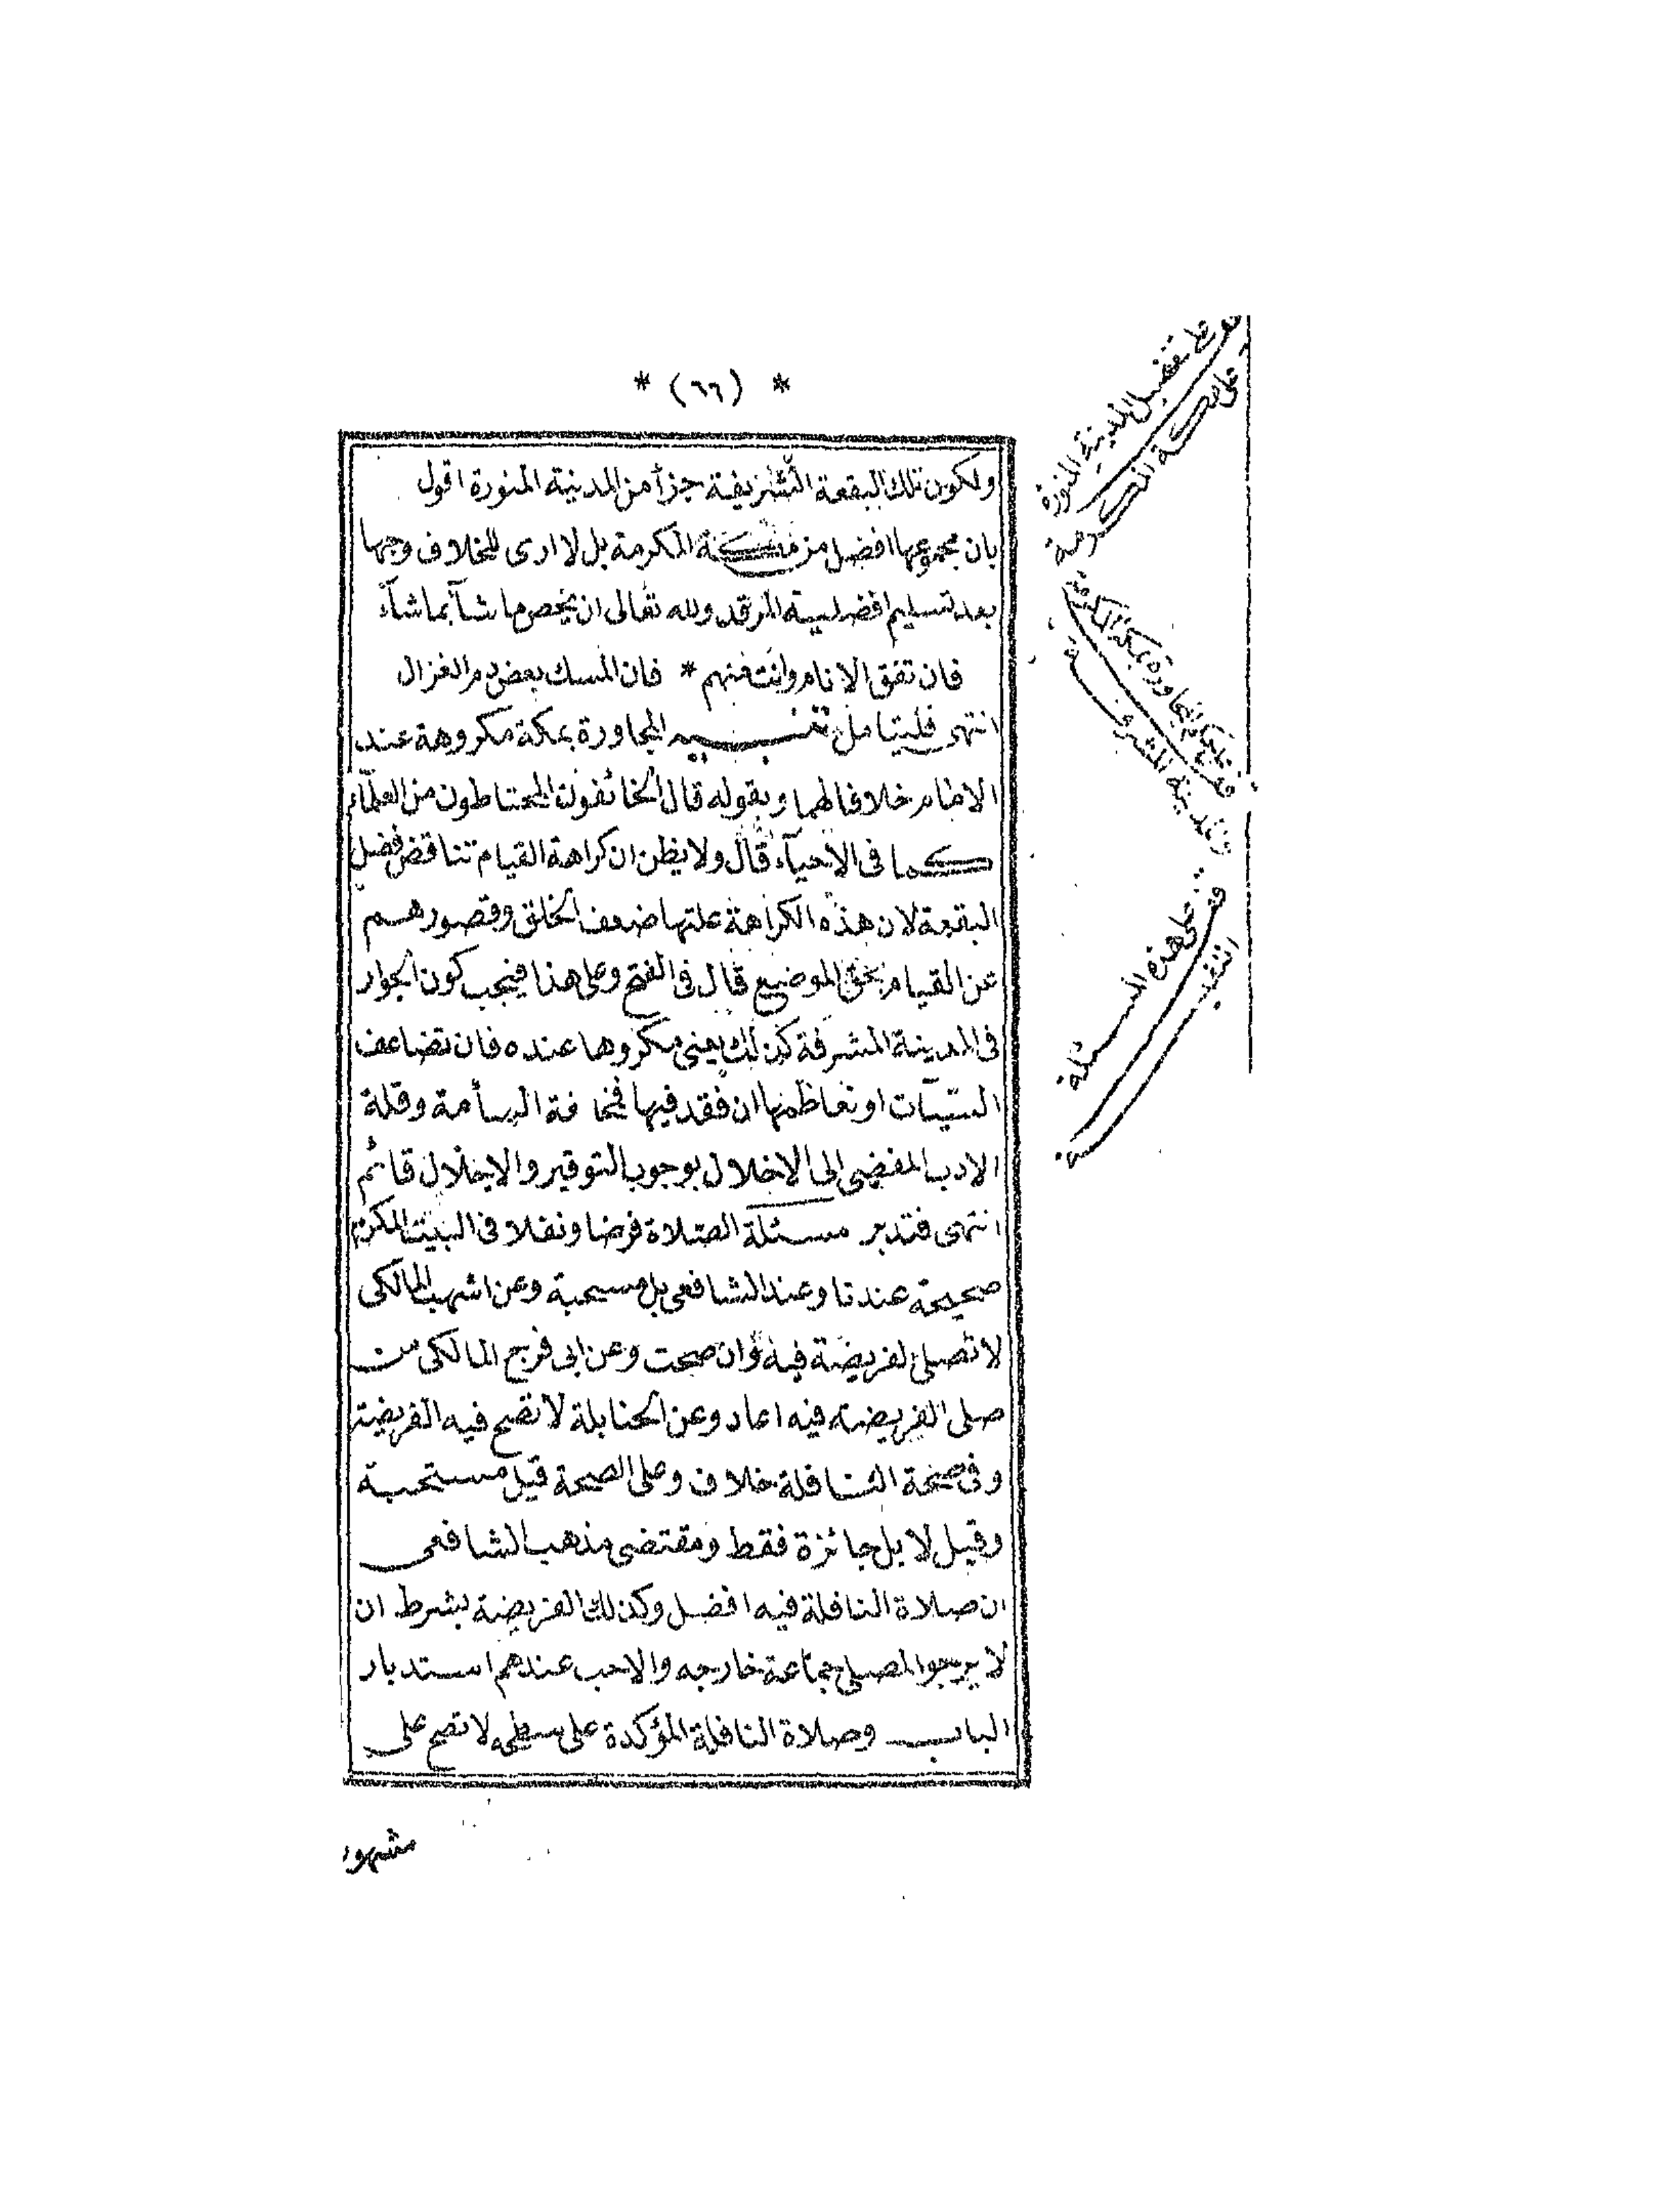 * (٦٦) *
ولكون تلك البقعة الشريفة جزأ من المدينة المنورة اقول
بان مجموعها افضل من مكة المكرمة بل لا ارى للخلاف وجها
بعد تسليم افضلية المرقد ولله تعالى ان يخص ما شآء بما شآء
فان تفق الانام وانت منهم * فان المسك بعض دم الغزال
انتهى فليتامل تنبيه المجاورة بمكة مكروهة عند
الامام خلافا لهما وبقوله قال الخائفون المحتاطون من العلمآء
كما فى الاحيآء قال ولا يظن ان كراهة القيام تناقض فضل
البقعة لان هذه الكراهة علتها ضعف الخلق وقصورهم
عن القيام بحق الموضع قال فى الفتح وعلى هذا فيجب كون الجوار
فى المدينة المشرفة كذلك يعنى مكروها عنده فان تضاعف
السيآت او تعاظمها ان فقد فيها فمخافة السأمة وقلة
الادب المفضى الى الاخلال بوجوب التوقير والاجلال قائم
انتهى فتدبر مسئلة الصلاة فرضا ونفلا فى البيت المكرم
صحيحة عندنا وعند الشافعى بل مستحبة وعن اشهب المالكى
لا تصلى الفريضة فيه وان صحت وعن ابى فرج المالكى من
صلى الفريضة فيه اعاد وعن الحنابلة لا تصح فيه الفريضة
وفى صحة النافلة خلاف وعلى الصحة قيل مستحبة
وقيل لا بل جائزة فقط ومقتضى مذهب الشافعى
ان صلاة النافلة فيه افضل وكذلك الفريضة بشرط ان
لا يرجوا المصلى جماعة خارجه والاحب عندهم استدبار
الباب وصلاة النافلة المؤكدة على سطحه لا تصح على
مشهو
تفضيل المدينة المنورة
على مكة المكرمة
المجاورة بمكة المكرمة
والمدينة المشرفة
قف على هذه المسئلة